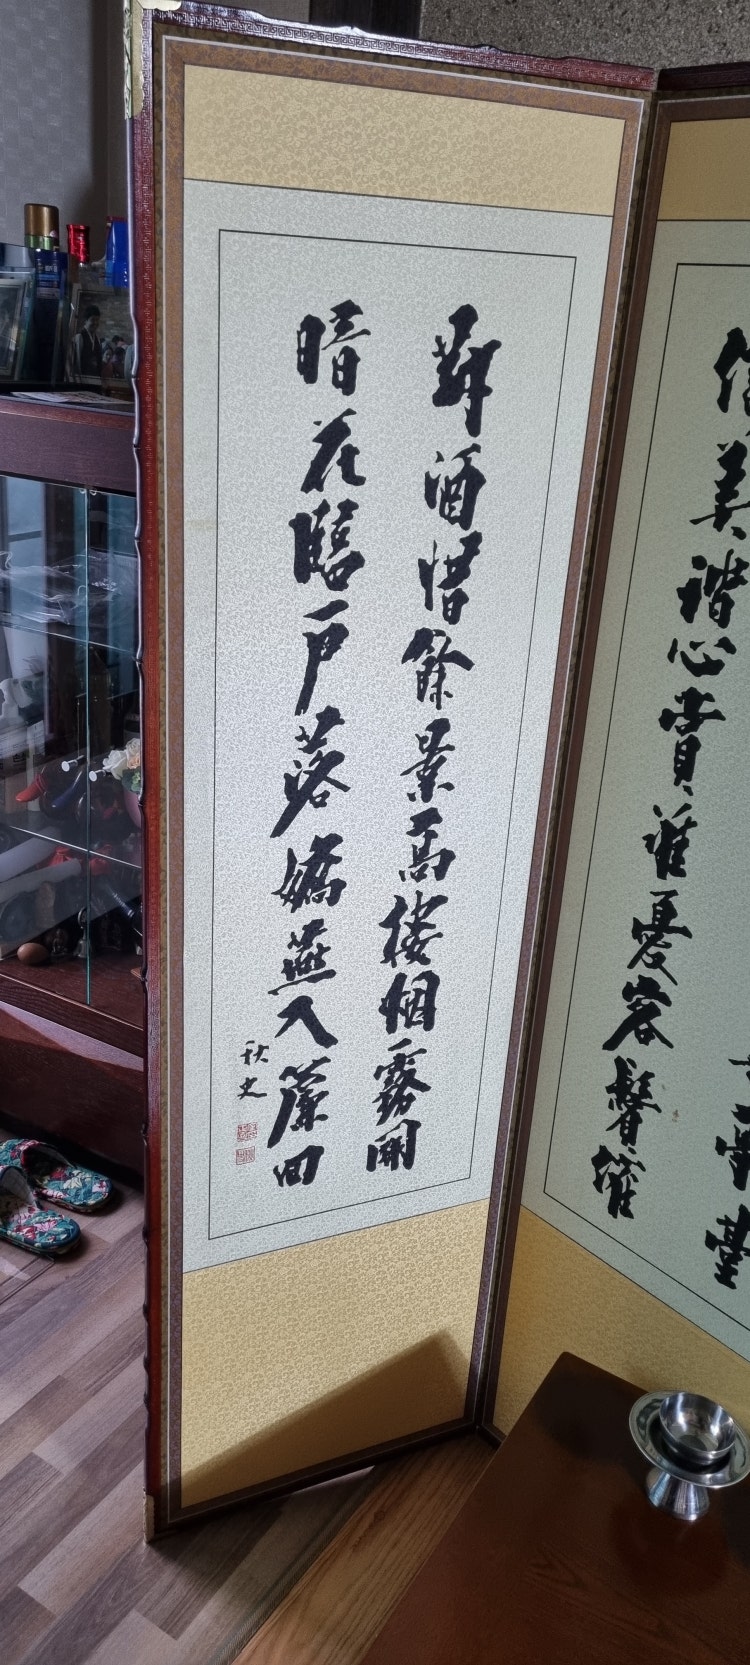 臺
信美諧心賞誰憂容鬢催
對酒惜餘景高樓烟霧開
暗花臨戶落嬌燕入簾回
秋史